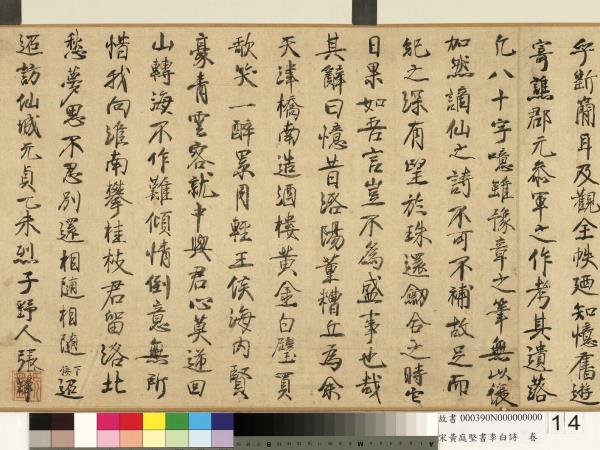 乎斷簡耳及觀全帙廼知憶舊遊
寄譙郡元參軍之作考其遺落
凡八十字噫雖豫章之筆無以復
加然謫仙之詩不可不補故足而
紀之深有望於珠還劒合之時它
日果如吾言豈不為盛事也哉
其辭曰憶昔洛陽董糟丘為余
天津橋南造酒樓黃金白璧買
歌笑一醉累月輕王侯海內賢
豪青雲客就中與君心莫逆回
山轉海不作難傾情倒意無所
惜我向淮南攀桂枝君留洛北
愁夢思不忍別還相隨相隨下接迢
迢訪仙城元貞乙未烈子野人張鐸
故書 000390N000000000
宋黃庭堅書李白詩 卷
14